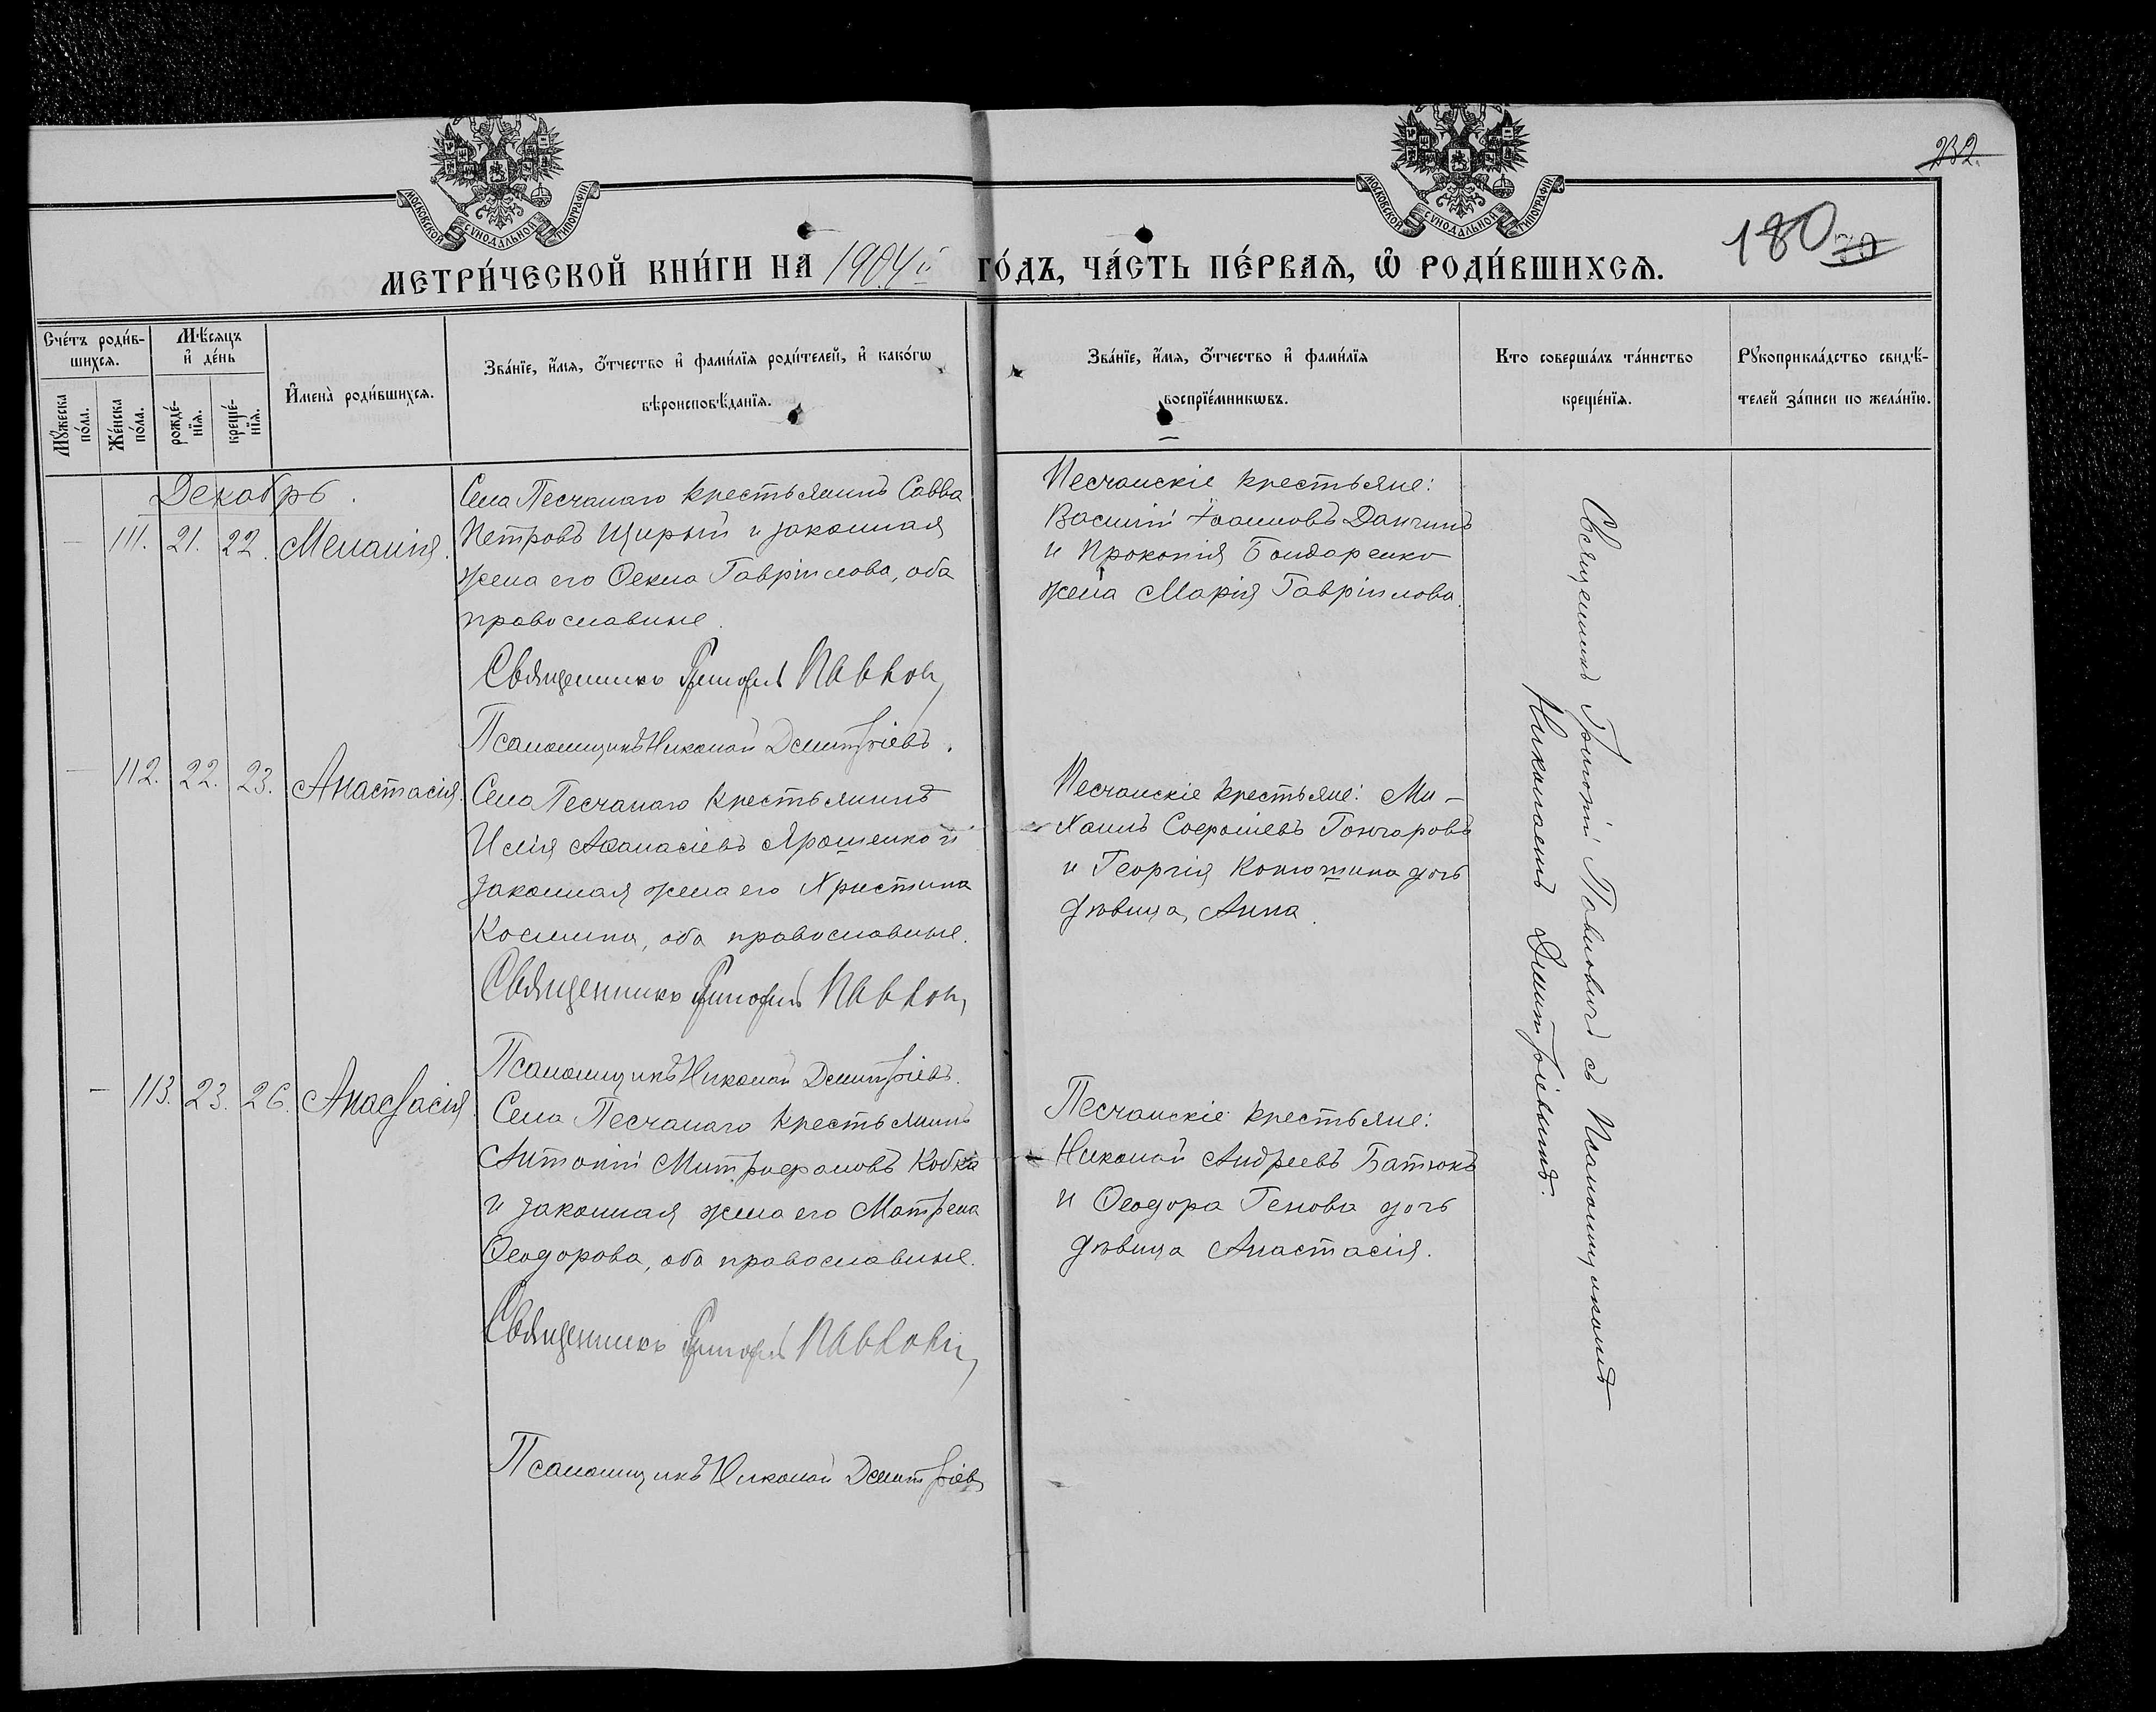 232.
180
МОСКОВСКОЙ СУНОДАЛЬНОЙ ТИПОГРАФІИ
МОСКОВСКОЙ СУНОДАЛЬНОЙ ТИПОГРАФІИ
МЕТРИ́ЧЕСКОЙ КНИ́ГИ НА 1904й ГО́ДЪ, ЧА́СТЬ ПЕ́РВАЯ, Ѡ҆ РОДИ́ВШИХСЯ.
Сче́тъ роди́в-
шихся.
Мꙋ́жеска
по́ла.
Же́нска
по́ла.
Мѣ́сяцъ
и҆ де́нь
рожде́-
нїя.
креще́-
нїя.
И҆мена̀ роди́вшихся.
Зва́нїе, и҆́мя, ѻ҆́тчество и҆ фами́лїя роди́телей, и҆ како́гѡ
вѣроисповѣ́данїя.
Зва́нїе, и҆́мя, ѻ҆́тчество и҆ фами́лїя
воспрїе́мникѡвъ.
Кто соверша́лъ та́инство
креще́нїя.
Рꙋкоприкла́дство свидѣ́-
телей за́писи по жела́нїю.
Декабрь.
— 111. 21. 22. Меланія.
Села Песчанаго крестьянинъ Савва
Петровъ Щирый и законная
жена его Ѳекла Гавріилова, оба
православные.
Священникъ Григорій Павлов
Псаломщикъ Николай Дмитріевъ.
Песчанскіе крестьяне:
Василій Іоанновъ
и Прокопія Бондаренко
жена Марія Гавріилова.
— 112. 22. 23. Анастасія.
Села Песчанаго крестьянинъ
Илія Аѳанасіевъ Ярошенко и
законная жена его Христина
Космина, оба православные.
Священникъ Григорій Павлов
Псаломщикъ Николай Дмитріевъ.
Песчанскіе крестьяне: Ми-
хаилъ Софроніевъ Гончаровъ
и Георгія Конюшина дочь
дѣвица, Анна.
— 113. 23. 26. Анастасія.
Села Песчанаго крестьянинъ
Антоній Митрофановъ Кобка
и законная жена его Матрена
Ѳеодорова, оба православные.
Священникъ Григорій Павлович
Псаломщикъ Николай Дмитріевъ
Песчанскіе крестьяне:
Николай Андреевъ Батюкъ
и Ѳеодора Генова дочь
дѣвица Анастасія.
Священникъ Григорій Павловичъ съ Псаломщикомъ
Николаемъ Дмитріевымъ.